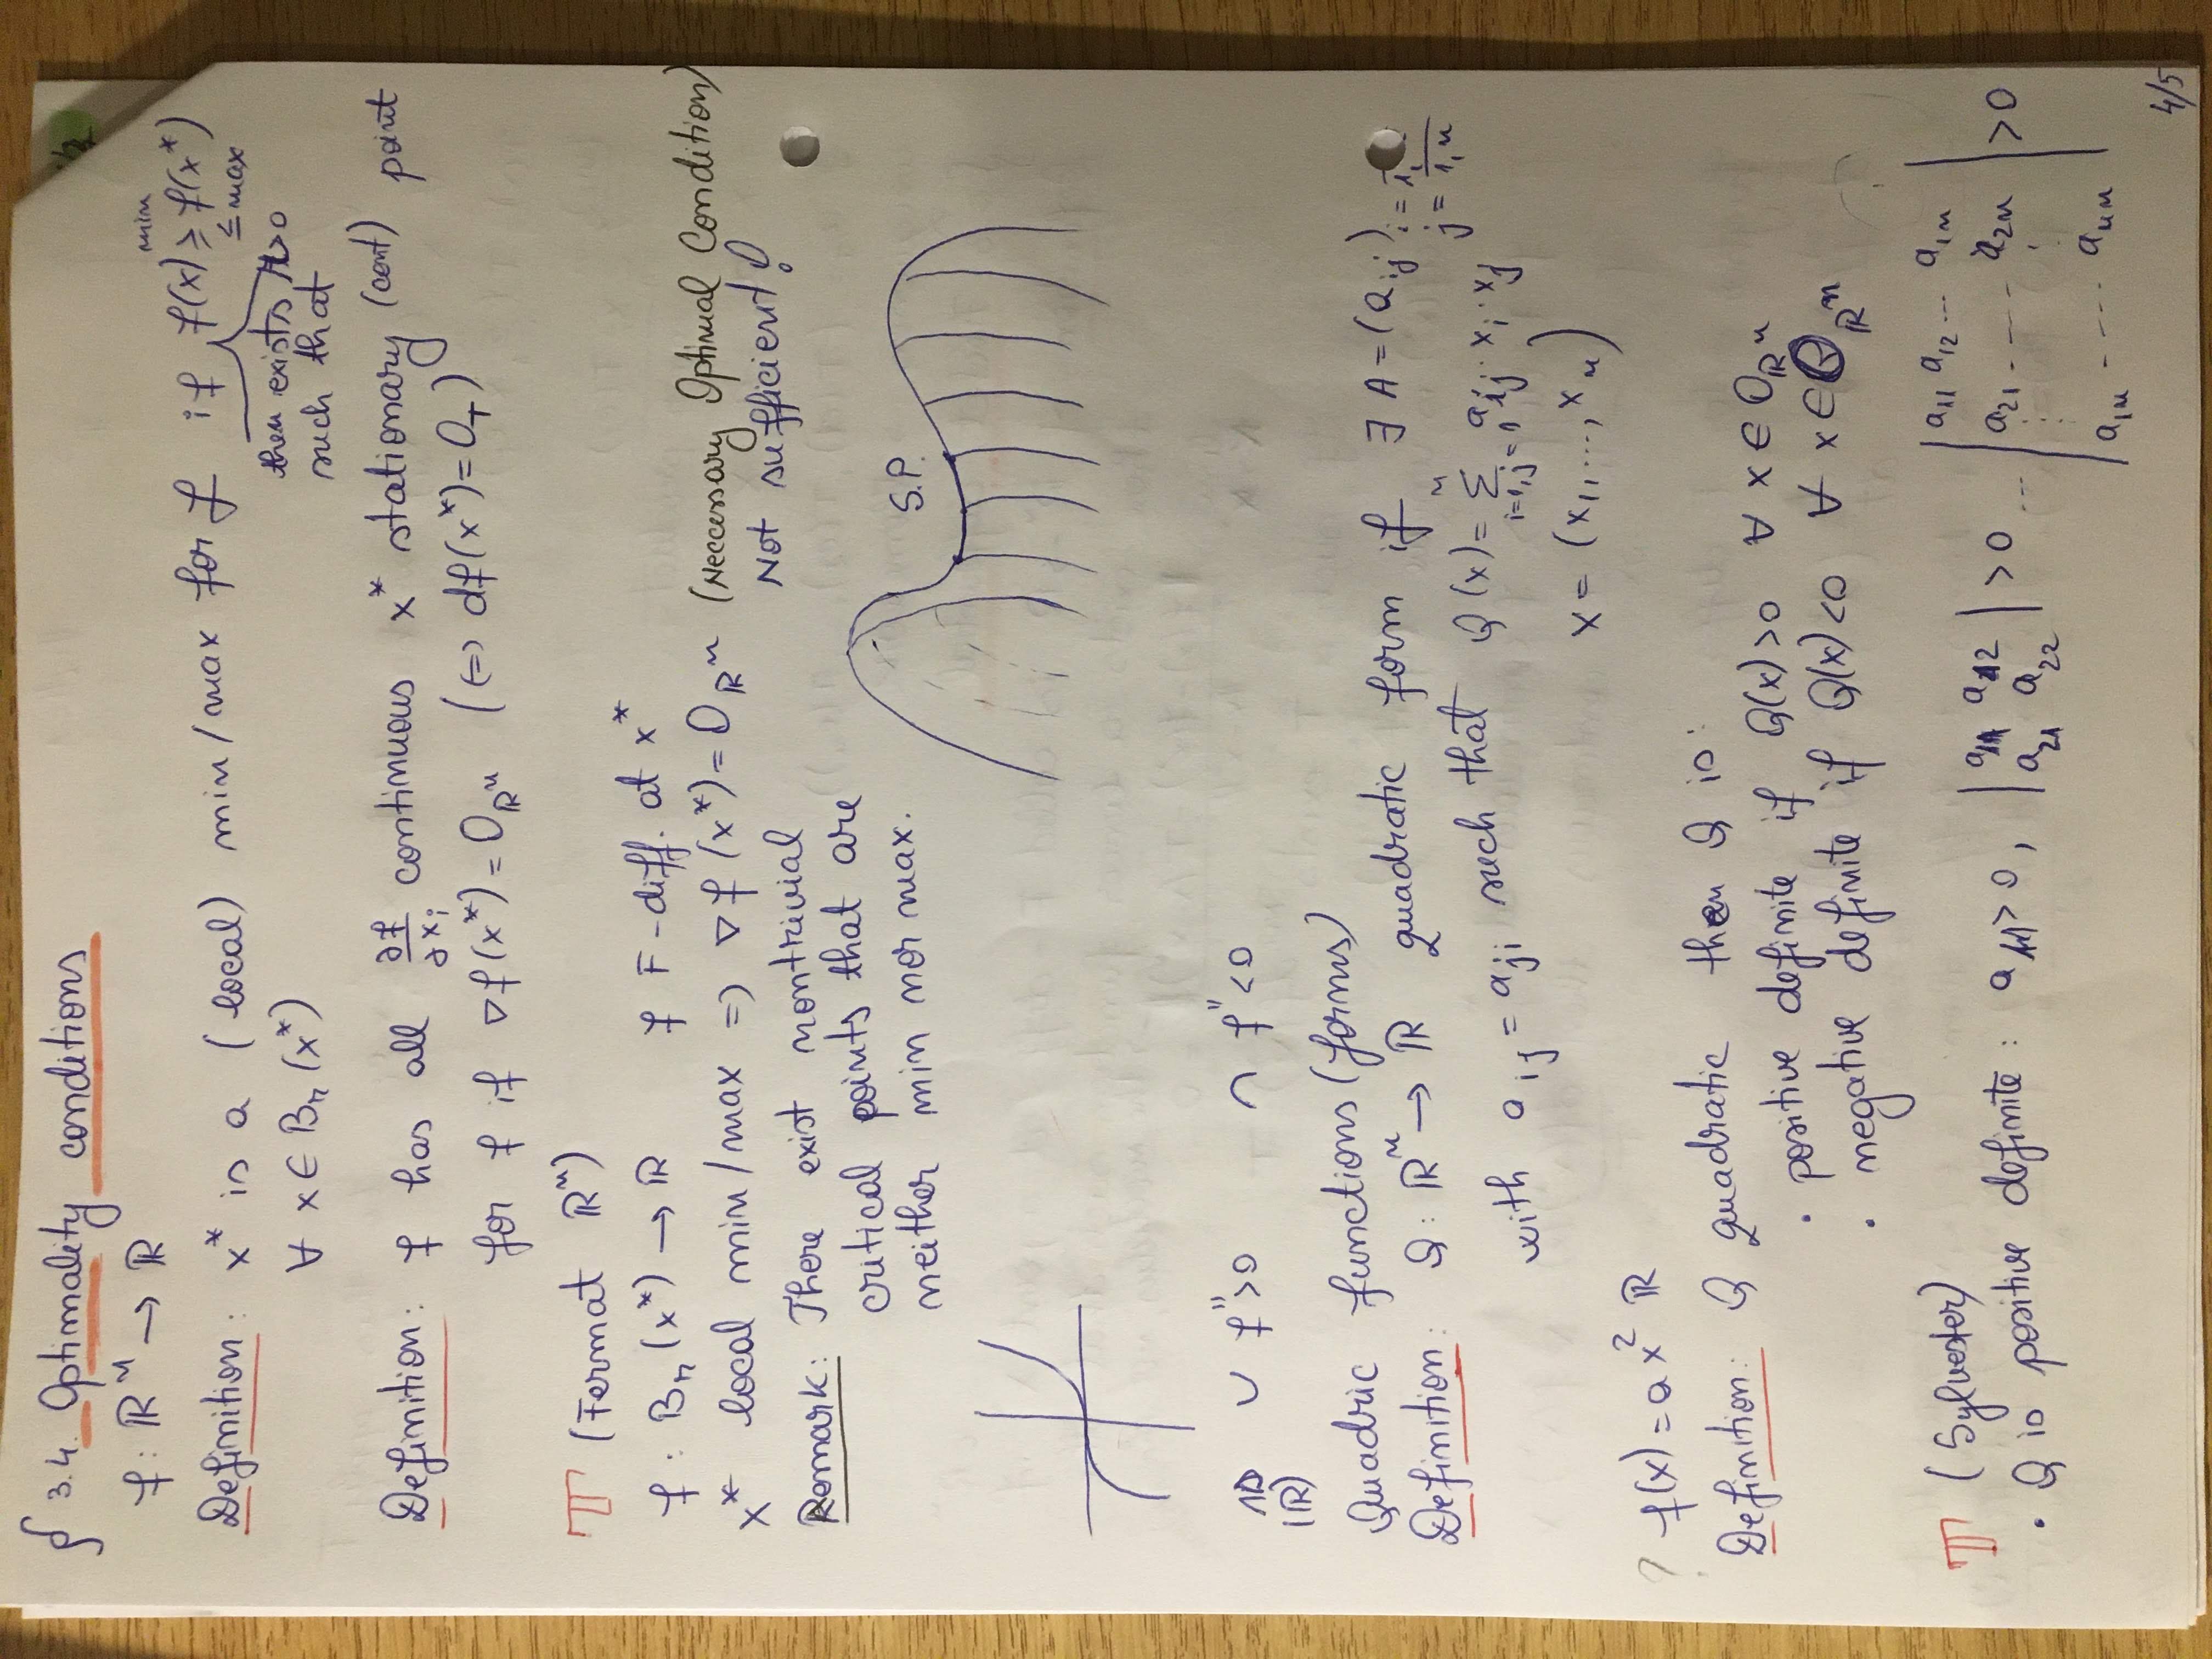 § 3.4. Optimality conditions
f: ℝⁿ → ℝ
Definition: x* is a (local) min/max for f if f(x) ≥ f(x*)
min
≤ max
then exists r>0
such that
∀ x ∈ Bᵣ(x*)
Definition: f has all ∂f/∂xᵢ continuous x* stationary (cont) point
for f if ∇f(x*) = 0_ℝⁿ (⇔ df(x*) = 0_T)
T (Fermat ℝⁿ)
f: Bᵣ(x*) → ℝ f F-diff. at x*
x* local min/max ⇒ ∇f(x*) = 0_ℝⁿ (Neccessary Optimal Condition)
Not sufficient!
Remark: There exist nontrivial
critical points that are
neither min nor max.
S.P.
1D ∪ f''>0 ∩ f''<0
(ℝ)
Quadric functions (forms)
Definition: Q: ℝⁿ → ℝ quadratic form if ∃ A = (aᵢⱼ) i = 1,
j = 1,n
with aᵢⱼ = aⱼᵢ such that Q(x) = Σⁿ i=1,j=1 aᵢⱼ · xᵢ · xⱼ
x = (x₁,...,xₙ)
? f(x) = ax² ℝ
Definition: Q quadratic then Q is:
• positive definite if Q(x)>0 ∀ x ∈ 0_ℝⁿ
• negative definite if Q(x)<0 ∀ x ∈ 0_ℝⁿ
T (Sylvester)
• Q is positive definite: a₁₁>0, |a₁₁ a₁₂ a₂₁ a₂₂| >0 ... |a₁₁ a₁₂ ... a₁ₙ a₂₁ ---- a₂ₙ ⋮ ⋮ a₁ₙ ---- aₙₙ| >0
4/5